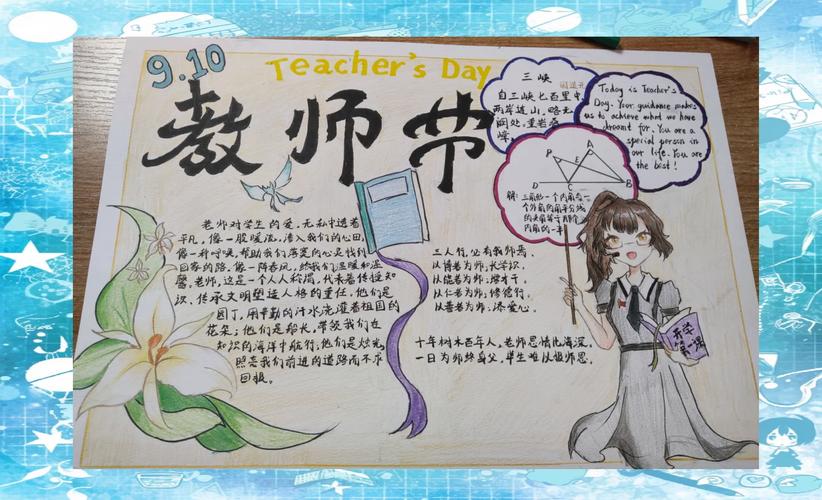 9.10
Teacher's Day
教师节
三峡
郦道元
自三峡七百里中,
两岸连山,略无
阙处,重岩叠
Today is Teacher's
Day. Your guidance makes
us to achieve what we have
dreamt for. You are a
special person in
our life. You are
the best!
A
P
E
D
C
B
解:三角形一个内角与一
个外角的角平分线
的夹角等于那个
内角的一半
老师对学生的爱,无私中透着
平凡,像一股暖流,渗入我们的心田,
像一种呼唤,帮助我们落寞的心灵找到
回家的路,像一阵春风,给我们温暖和温
馨。老师,这是一个人人称谓,代表着传授知
识、传承文明塑造人格的重任。他们是
园丁,用辛勤的汗水浇灌着祖国的
花朵;他们是船长,带领我们在
知识的海洋中航行;他们是烛光,
照亮我们前进的道路而不求
回报。
三人行,必有我师焉。
从博者为师,长学识。
从能者为师,增才干。
从仁者为师,修德行。
从善者为师,添爱心。
十年树木百年人,老师恩情比海深。
一日为师终身父,毕生难以报师恩。
开学
第一课